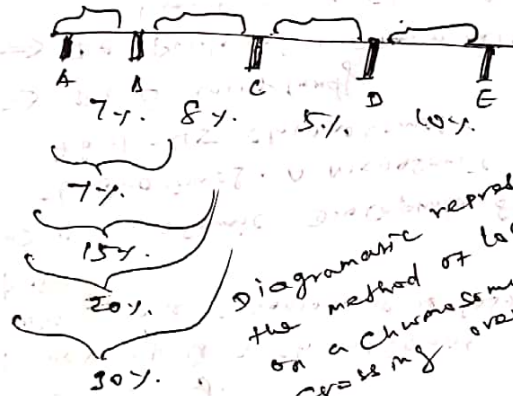 A B C D E
7%. 8%. 5%. 10%.
7%.
15%.
20%.
30%.
Diagramatic repres
the method of loc
on a Chromosom
Crossing over